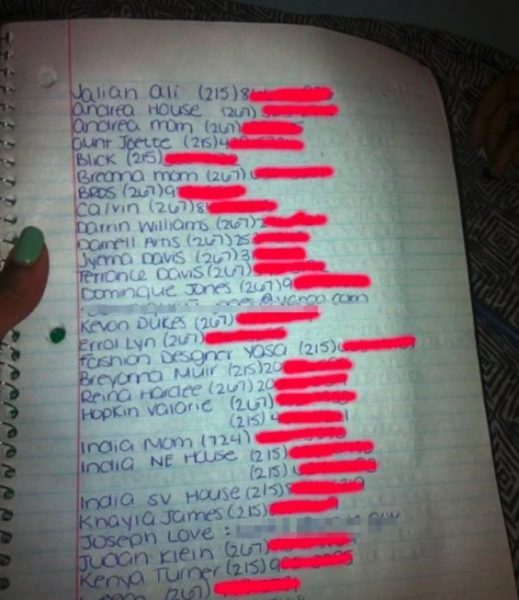 Jalian Ali (215) 8
Andrea House (267)
Andrea mom (267)
Aunt Joette (215) 4
Blick (215)
Breanna mom (267)
BROS (267) 9
Calvin (267) 8
Darrin Williams (267) 2
Darnell Arns (267) 25
Jyema Davis (267) 3
Terrance Davis (267)
Dominique Jones (267) 9
@yahoo.com
Kevon Dukes (267)
Errol Lyn (267)
Fashion Designer Yasa (215)
Breyonna Muir (215) 20
Reina Hardee (267) 20
Hopkin Valarie (267)
(215) 4
India Mom (724)
India NE House (215)
(215)
India SV House (215)
Khayla James (215)
Joseph Love :
Judan Klein (267)
Kenya Turner (215) 9
(267)